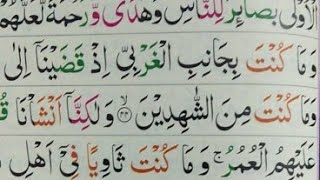 الْاُوْلٰى بَصَآئِرَ لِلنَّاسِ وَهُدًى وَّرَحْمَةً لَّعَلَّهُمْ
وَمَا كُنْتَ بِجَانِبِ الْغَرْبِيِّ اِذْ قَضَيْنَاۤ اِلٰى
وَمَا كُنْتَ مِنَ الشّٰهِدِيْنَ ۙ۴۴ وَلٰكِنَّاۤ اَنْشَاْنَا
عَلَيْهِمُ الْعُمُرُ ۚ وَمَا كُنْتَ ثَاوِيًا فِيْۤ اَهْلِ